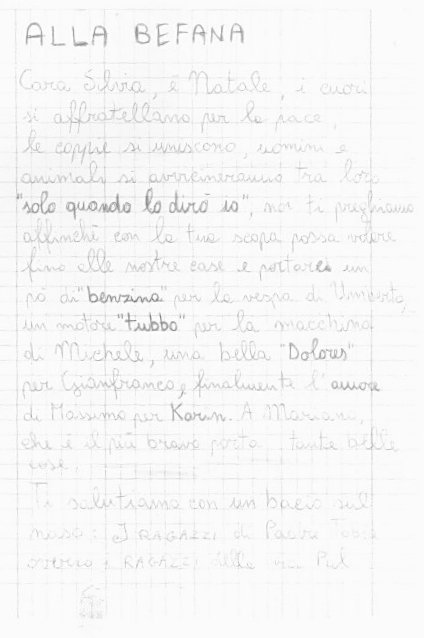 ALLA BEFANA
Cara Silvia, è Natale, i cuori
si affratellano per la pace,
le coppie si uniscono, uomini e
animali si avvicineranno tra loro
"solo quando lo dirò io", noi ti preghiamo
affinché con la tua scopa possa volare
fino alle nostre case e portarci un
pò di "benzina" per la vespa di Umberto,
un motore "tubbo" per la macchina
di Michele, una bella "Dolores"
per Gianfranco, e finalmente l'amore
di Massimo per Karin. A Mariano,
che è il più bravo poeta, tante belle
cose.
Ti salutiamo con un bacio sul
naso: I RAGAZZI di Padre
ovvero i RAGAZZI della via Pal